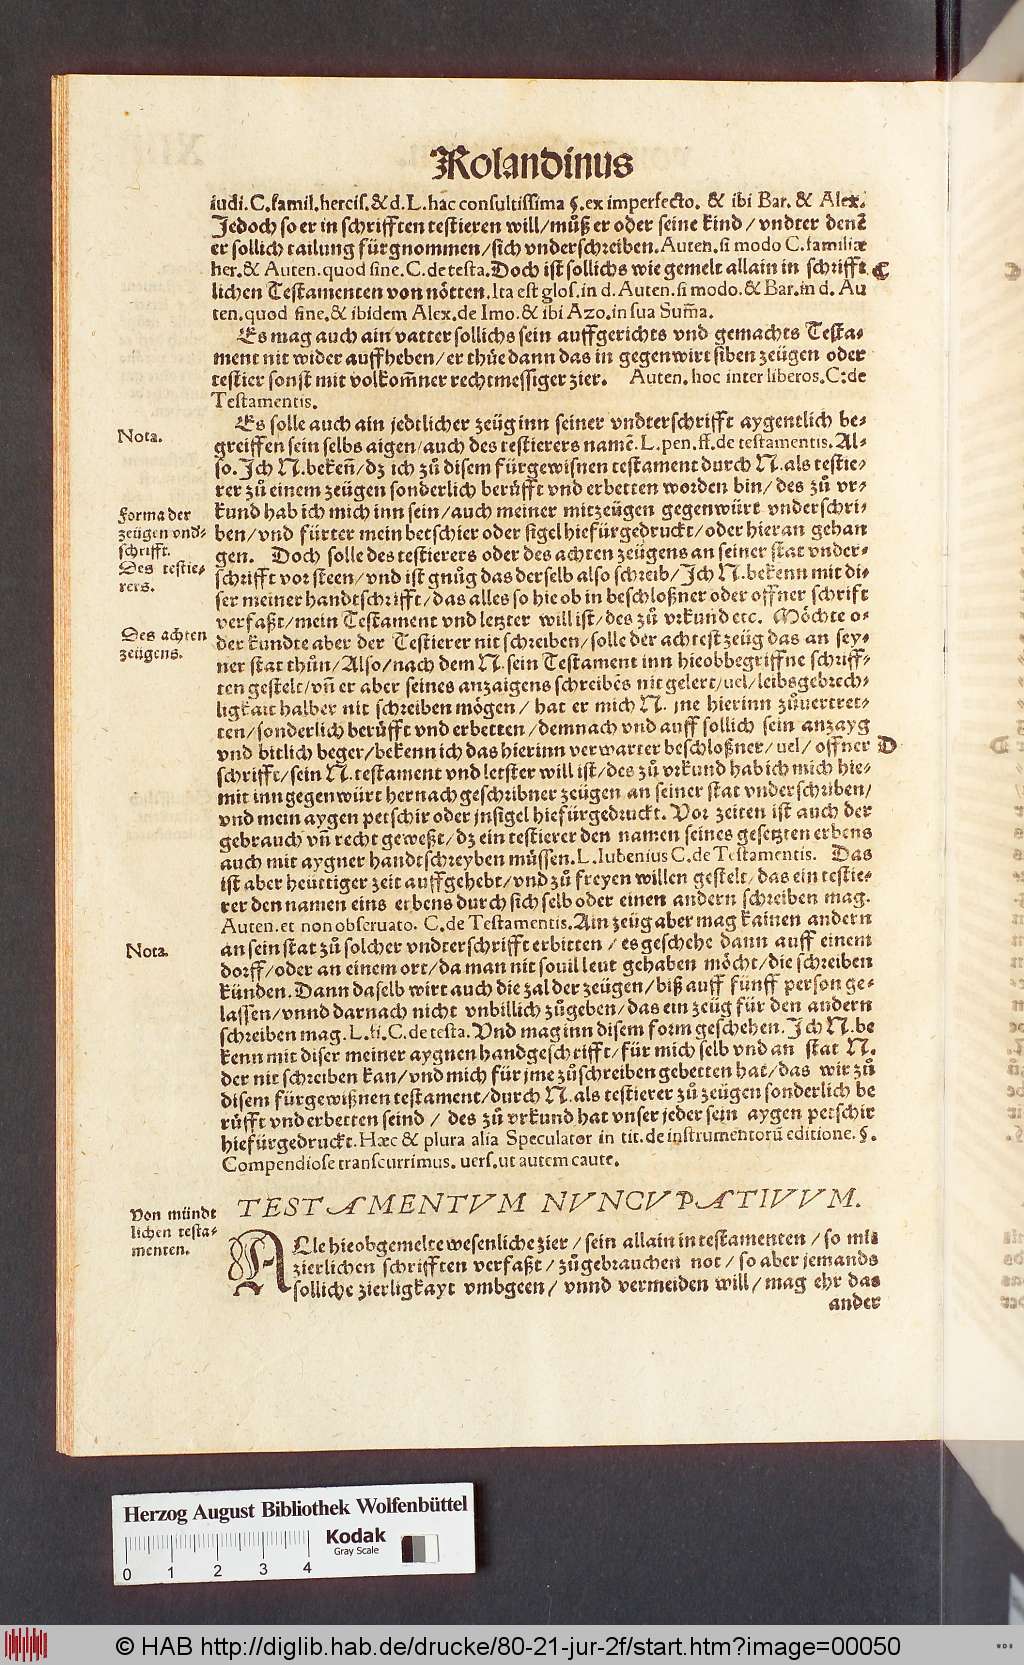 Rolandinus
iudi. C. famil. hercis. & d. L. hac consultissima §. ex imperfecto. & ibi Bar. & Alex.
Jedoch so er in schrifften testieren will/ můß er oder seine kind/ vndter denẽ
er sollich tailung fürgnommen/ sich vnderschreiben. Auten. si modo C. familiæ
her. & Auten. quod sine. C. de testa. Doch ist sollichs wie gemelt allain in schrifft C
lichen Testamenten von nötten. Ita est glos. in d. Auten. si modo. & Bar. in d. Au
ten. quod sine. & ibidem Alex. de Imo. & ibi Azo. in sua Sum̃a.
Es mag auch ain vatter sollichs sein auffgerichts vnd gemachts Testa-
ment nit wider auffheben/ er thüe dann das in gegenwirt siben zeügen oder
testier sonst mit volkom̃ner rechtmessiger zier. Auten. hoc inter liberos. C. de
Testamentis.
Nota.
Es solle auch ain jedtlicher zeüg inn seiner vndterschrifft aygentlich be-
greiffen sein selbs aigen/ auch des testierers namẽ. L. pen. ff. de testamentis. Al-
so. Ich N. bekeñ/ dz ich zů disem fürgewisnen testament durch N. als testie-
rer zů einem zeügen sonderlich berůfft vnd erbetten worden bin/ des zů vr-
Forma der
zeügen vnd-
schrifft.
kund hab ich mich inn sein/ auch meiner mitzeügen gegenwürt vnderschri-
ben/ vnd fürter mein betschier oder sigel hiefürgedruckt/ oder hieran gehan
gen. Doch solle des testierers oder des achten zeügens an seiner stat vnder-
Des testie-
rers.
schrifft vor steen/ vnd ist gnůg das derselb also schreib/ Ich N. bekenn mit di-
ser meiner handtschrifft/ das alles so hie ob in beschloßner oder offner schrift
verfaßt/ mein Testament vnd letzter will ist/ des zů vrkund etc. Möchte o-
Des achten
zeügens.
der kundte aber der Testierer nit schreiben/ solle der achtest zeüg das an sey-
ner stat thůn/ Also/ nach dem N. sein Testament inn hieobbegriffne schriff-
ten gestelt/ vñ er aber seines anzaigens schreibẽs nit gelert/ uel/ leibsgebrech-
ligkait halber nit schreiben mögen/ hat er mich N. jne hierinn zůuertret-
ten/ sonderlich berůfft vnd erbetten/ demnach vnd auff sollich sein anzayg
vnd bitlich beger/ bekenn ich das hierinn verwarter beschloßner/ uel/ offner D
schrifft/ sein N. testament vnd letster will ist/ des zů vrkund hab ich mich hie-
mit inn gegenwürt hernach geschribner zeügen an seiner stat vnderschriben/
vnd mein aygen petschir oder jnsigel hiefürgedruckt. Vor zeiten ist auch der
gebrauch vñ recht geweßt/ dz ein testierer den namen seines gesetzten erbens
auch mit aygner handt schreyben müssen. L. Iubenius C. de Testamentis. Das
ist aber heüttiger zeit auffgehebt/ vnd zů freyen willen gestelt/ das ein testie-
rer den namen eins erbens durch sich selb oder einen andern schreiben mag.
Auten. et non obseruato. C. de Testamentis. Ain zeüg aber mag kainen andern
Nota.
an sein stat zů solcher vndterschrifft erbitten/ es geschehe dann auff einem
dorff/ oder an einem ort/ da man nit souil leut gehaben möcht/ die schreiben
künden. Dann daselb wirt auch die zal der zeügen/ biß auff fünff person ge-
lassen/ vnnd darnach nicht vnbillich zůgeben/ das ein zeüg für den andern
schreiben mag. L. fi. C. de testa. Vnd mag inn disem form geschehen. Ich N. be
kenn mit diser meiner aygnen handgeschrifft/ für mich selb vnd an stat N.
der nit schreiben kan/ vnd mich für jme zůschreiben gebetten hat/ das wir zů
disem fürgewißnen testament/ durch N. als testierer zů zeügen sonderlich be
růfft vnd erbetten seind/ des zů vrkund hat vnser jeder sein aygen petschir
hiefürgedruckt. Hæc & plura alia Speculator in tit. de instrumentorũ editione. §.
Compendiose transcurrimus. uers. ut autem caute.
TESTAMENTVM NVNCVPATIVVM.
Von mündt
lichen testa-
menten.
Alle hieobgemelte wesenliche zier/ sein allain in testamenten/ so mit
zierlichen schrifften verfaßt/ zůgebrauchen not/ so aber jemands
solliche zierligkayt vmbgeen/ vnnd vermeiden will/ mag ehr das
ander
Herzog August Bibliothek Wolfenbüttel
Kodak
Gray Scale
0 1 2 3 4
© HAB http://diglib.hab.de/drucke/80-21-jur-2f/start.htm?image=00050